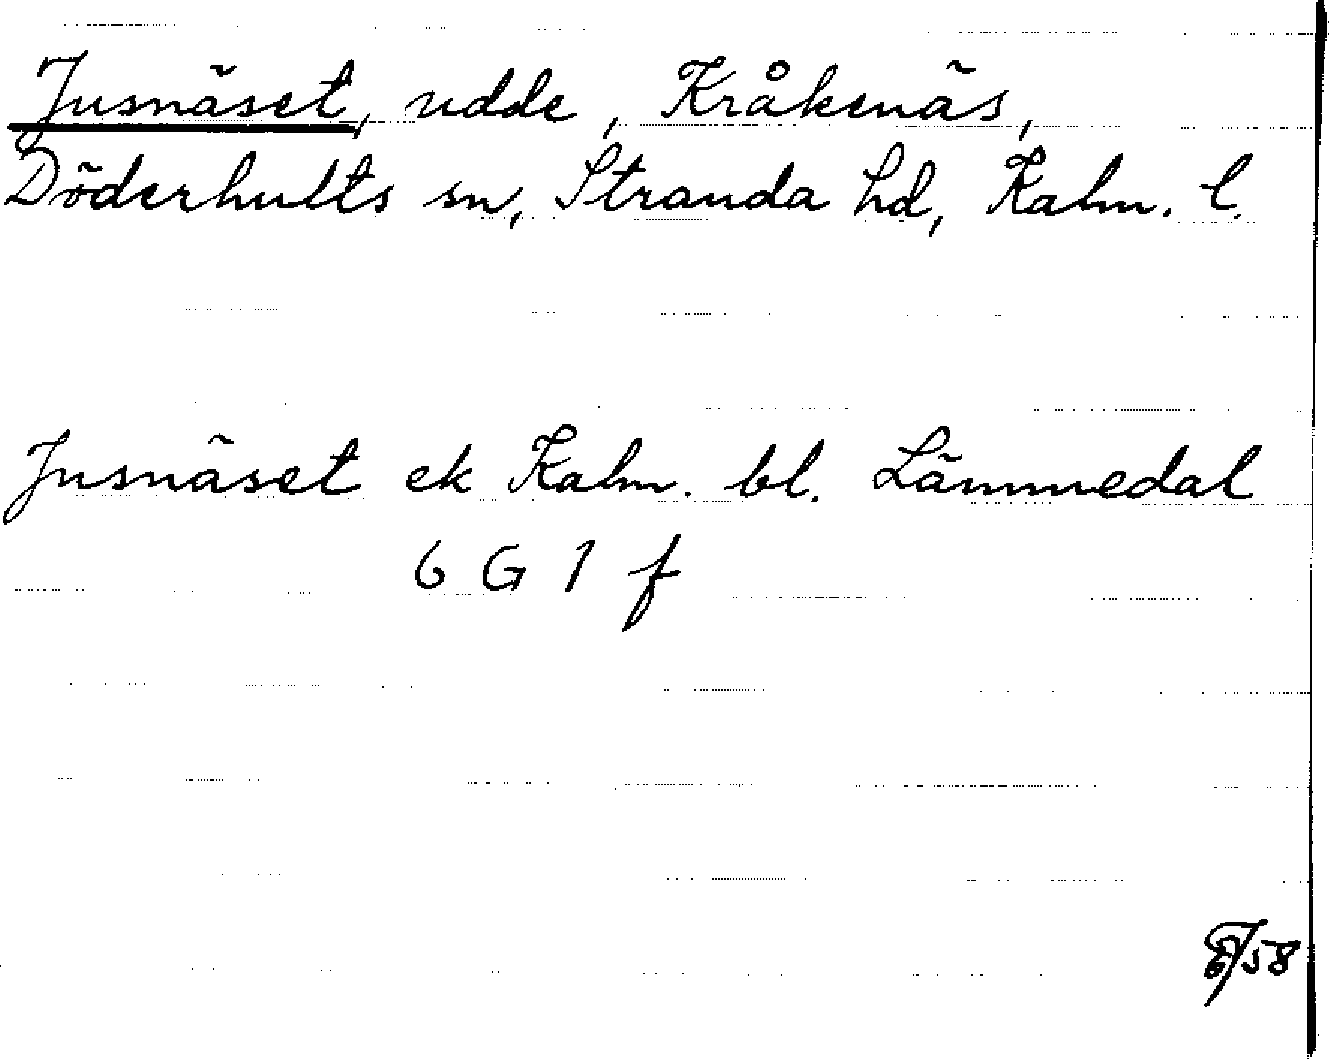 Jusnäset, udde, Kråkenäs,
Döderhults sn, Stranda hd, Kalm. l.
Jusnäset ek Kalm. bl. Lämmedal
6 G 1 f
58